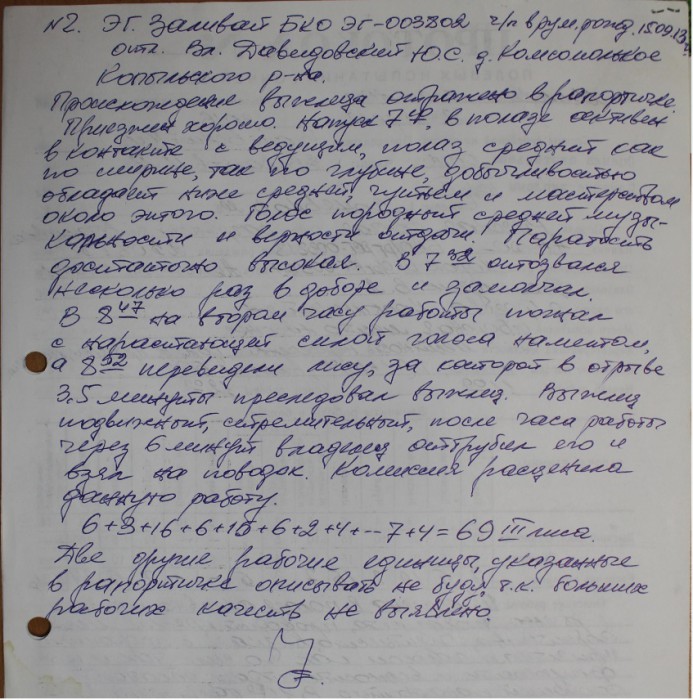 №2. ЭГ. Заливай БКО ЭГ-003802 ч/п в рум. рожд. 15.09.13г
отл. Вл. Давидовский Ю.С. д. Комсомольское
Копыльского р-на.
Происхождение выжлеца отражено в рапортичке.
Приезжен хорошо. Напуск 7 в полазе активен
в контакте с ведущим, полаз средний как
по ширине, так и по глубине, добычливостью
обладает ниже средней, чутьем и мастерством
около этого. Голос породный средней музы-
кальности и верности отдачи. Паратость
достаточно высокая. В 7 32 отозвался
несколько раз в доборе и замолчал.
В 8 47 на втором часу работы погнал
с нарастающей силой голоса наметом,
а 8 52 перевидели лису, за которой в отрыве
3,5 минуты преследовал выжлец. Выжлец
подвижный, стремительный, после часа работы
через 6 минут владелец оттрубил его и
взял на поводок. Комиссия расценила
данную работу.
6+3+16+6+15+6+2+4+--7+4=69 III лиса.
Две другие рабочие единицы, указанные
в рапортичке описывать не буду т.к. больших
рабочих качеств не выявлено.